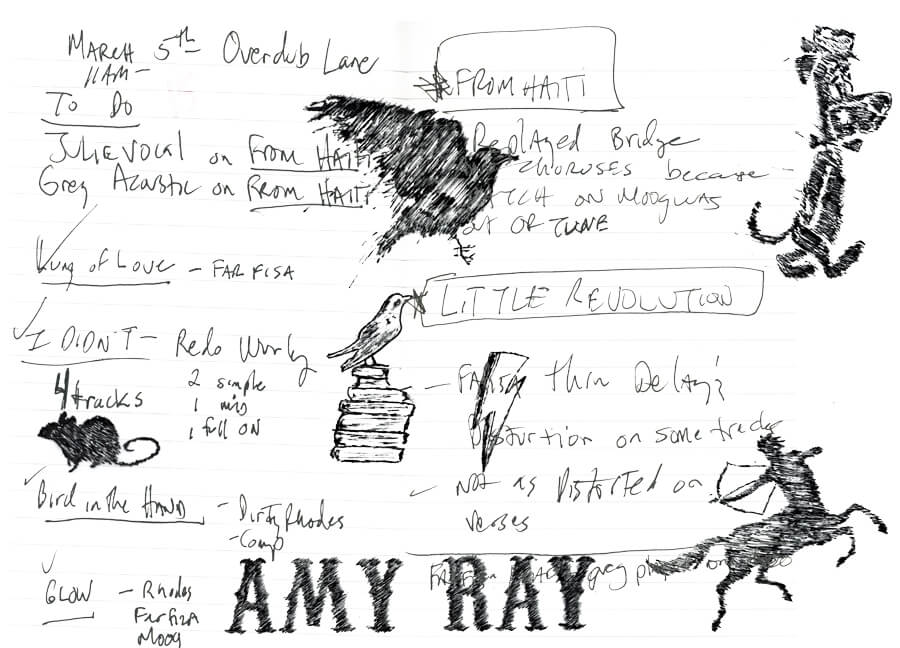 MARCH 5th Overdub Lane
11AM -
To Do
JULIE VOCAL on FROM HAITI
Greg Acoustic on FROM HAITI
Kung of Love - FARFISA
I DIDN'T - Redo Wurly
4 tracks
2 simple
1 mid
1 full ON
Bird in the HAND - Dirty Rhodes
- Comp
GLOW - Rhodes
FARFISA
MOOG
FROM HAITI
Replayed Bridge
CHORUSES because -
PITCH ON MOOG WAS
OUT OF TUNE
LITTLE REVOLUTION
- thin Delay?
Distortion on some tracks
Not as Distorted on
verses
AMY RAY